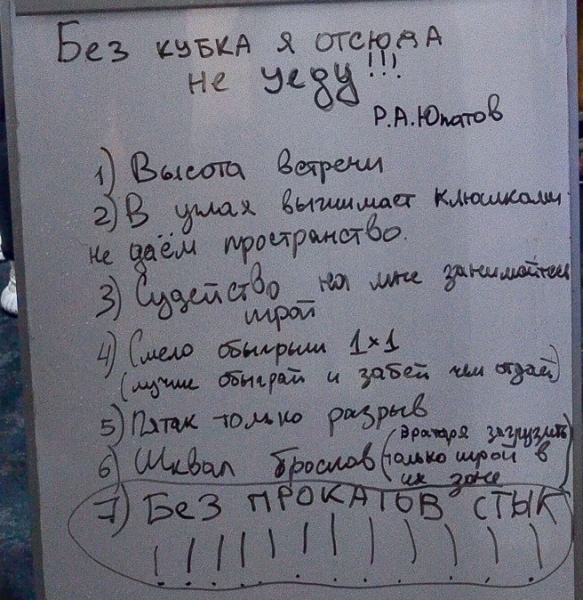 Без КУБКА Я ОТСЮДА
не уеду!!!
Р.А.Юпатов
1) Высота встречи
2) В углах выжимает клюшками
не даём пространство.
3) Судейство на мне занимайтесь
игрой
4) Смело обыгрыш 1х1
(лучше обыграй и забей чем отдай)
5) Пятак только разрыв
6) Шквал бросков (вратаря загрузить
только игрой в
их зоне
7) БЕЗ ПРОКАТОВ СТЫК
!!!!!!!!!!!!